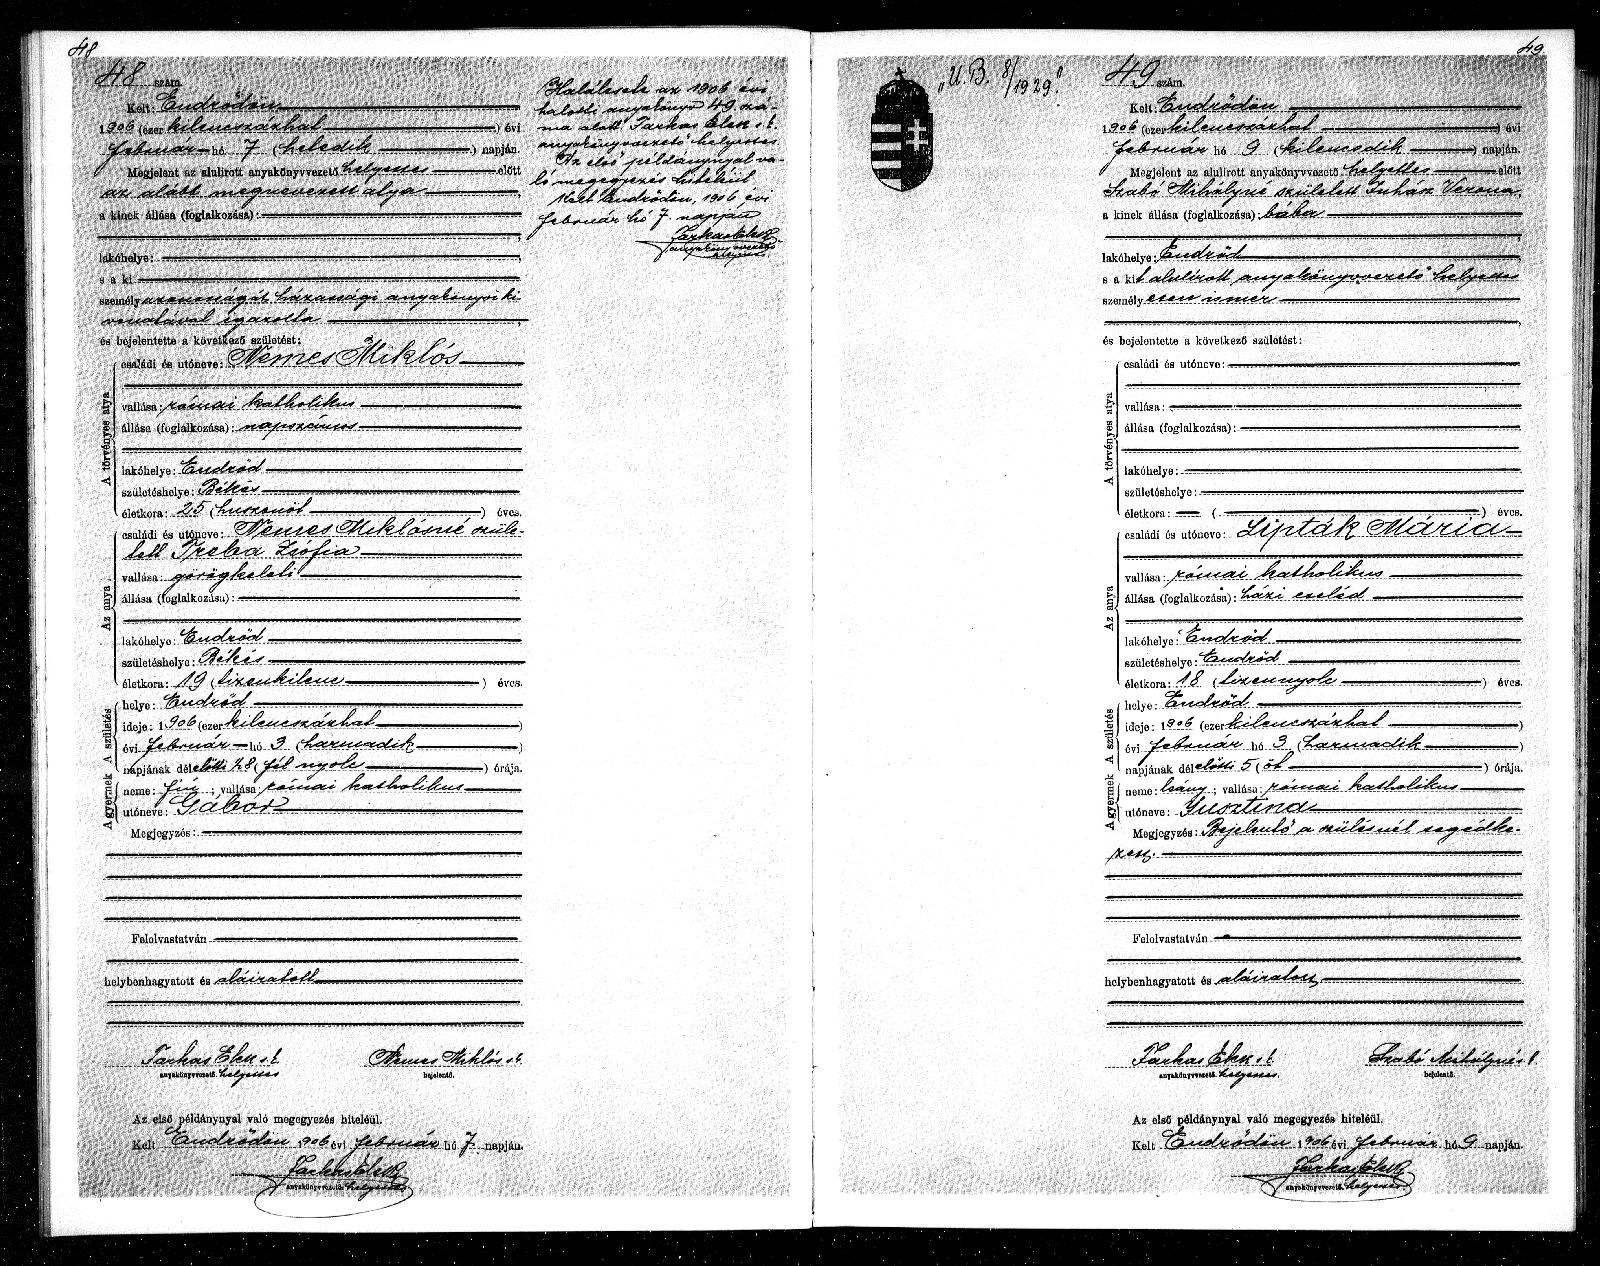 48
48 szám.
Kelt: Endrődön
1906 (ezer kilenczszázhat) évi
február hó 7 (hetedik) napján.
Megjelent az alulirott anyakönyvvezető helyettes előtt
az alább megnevezett atya,
a kinek állása (foglalkozása):
lakóhelye:
s a ki
személyazonosságát házassági anyakönyvi ki
vonatával igazolta,
és bejelentette a következő születést:
A törvényes atya
családi és utóneve: Nemes Miklós
vallása: római katholikus
állása (foglalkozása): napszámos
lakóhelye: Endrőd
születéshelye: Békés
életkora: 25 (huszonöt) éves.
Az anya
családi és utóneve: Nemes Miklósné szüle-
tett Treba Zsófia
vallása: görögkeleti
állása (foglalkozása):
lakóhelye: Endrőd
születéshelye: Békés
életkora: 19 (tizenkilenc) éves.
A gyermek A születés
helye: Endrőd
ideje: 1906 (ezer kilenczszázhat)
évi február hó 3 (harmadik)
napjának délelőtti ½8 (fél nyolc) órája.
neme: fiú; vallása: római katholikus
utóneve: Gábor
Megjegyzés:
Felolvastatván
helybenhagyatott és aláiratott
Farkas Elek s.k. Nemes Miklós s.k.
anyakönyvvezető. helyettes bejelentő.
Az első példánynyal való megegyezés hiteléül.
Kelt Endrődön 1906 évi február hó 7 napján.
Farkas Elek
anyakönyvvezető. helyettes
Halálesete az 1906 évi
halotti anyakönyv 49 szá-
ma alatt. Farkas Elek s.k.
anyakönyvvezető helyettes
Az első példánynyal va-
ló megegyezés hiteléül
Kelt Endrődön, 1906 évi
február hó 7 napján
Farkas Elek
anyakönyvvezető
helyettes
49
"U. B. 8/1929."
49 szám.
Kelt: Endrődön
1906 (ezer kilenczszázhat) évi
február hó 9 (kilencedik) napján.
Megjelent az alulirott anyakönyvvezető helyettes előtt
Szabó Mihályné született Juhász Verona,
a kinek állása (foglalkozása): bába
lakóhelye: Endrőd
s a kit alulírott anyakönyvvezető helyettes
személyesen ismer
és bejelentette a következő születést:
A törvényes atya
családi és utóneve:
vallása:
állása (foglalkozása):
lakóhelye:
születéshelye:
életkora: ( ) éves.
Az anya
családi és utóneve: Lipták Mária
vallása: római katholikus
állása (foglalkozása): házi cseléd
lakóhelye: Endrőd
születéshelye: Endrőd
életkora: 18 (tizennyolc) éves.
A gyermek A születés
helye: Endrőd
ideje: 1906 (ezer kilenczszázhat)
évi február hó 3 (harmadik)
napjának délelőtti 5 (öt) órája.
neme: leány; vallása: római katholikus
utóneve: Jusztina
Megjegyzés: Bejelentő a szülésnél segédke-
zett.
Felolvastatván
helybenhagyatott és aláiratott
Farkas Elek s.k. Szabó Mihályné s.k.
anyakönyvvezető. helyettes bejelentő.
Az első példánynyal való megegyezés hiteléül.
Kelt Endrődön 1906 évi február hó 9 napján.
Farkas Elek
anyakönyvvezető. helyettes